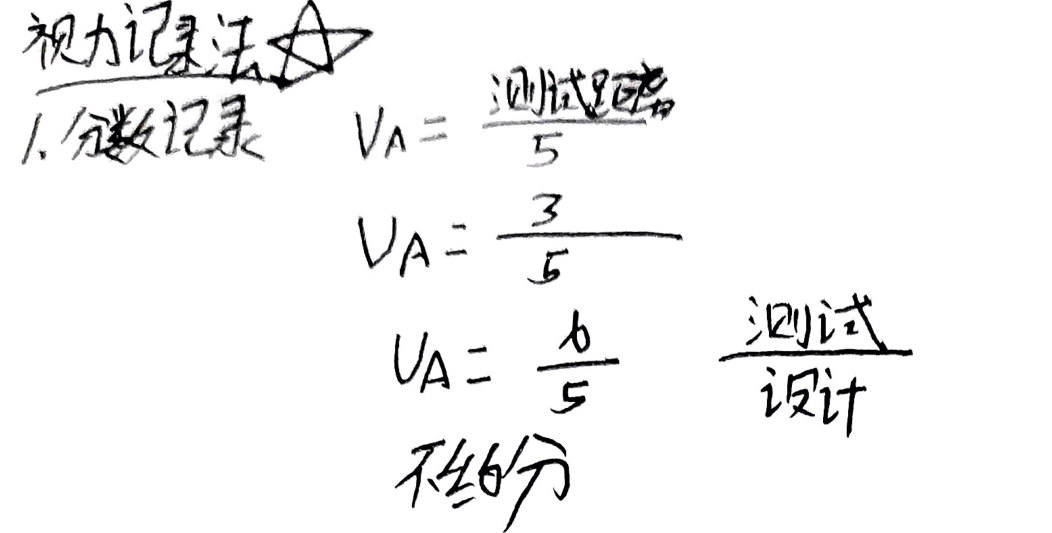 视力记录法☆
1.分数记录 VA = 测试距离/5
VA = 3/5
VA = 6/5 测试/设计
不约分